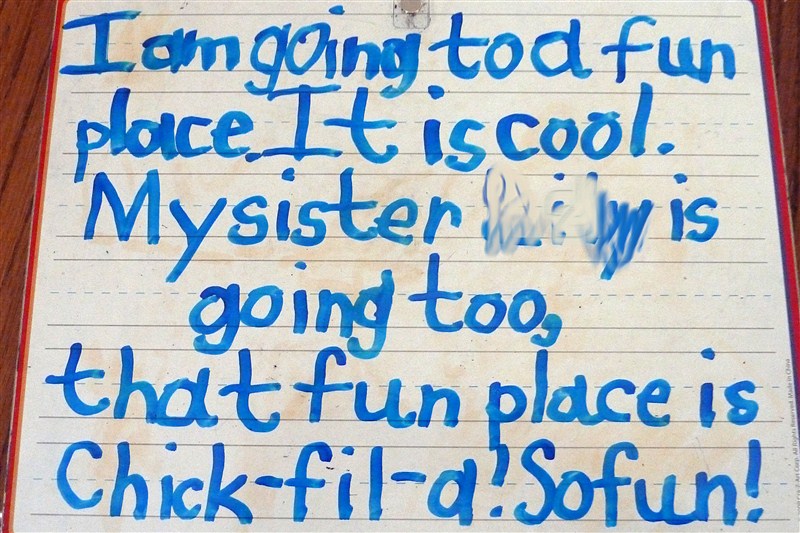 I am going to a fun
place. It is cool.
My sister is
going too,
that fun place is
Chick-fil-a! So fun!
Art Corp. All Rights Reserved. Made in China